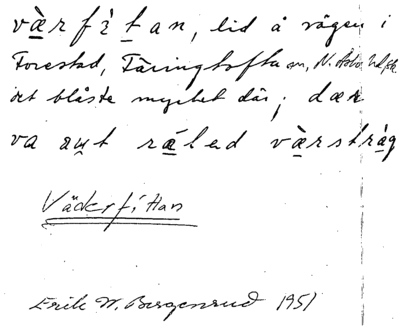 værfìtan, lid å vägen i
Forestad, Färingtofta sn, N. Åsbo hd, 
det blåste mycket där; dær
va aɯt rǽlad værstràg
Väderfittan
Erik W. Bergenrud 1951